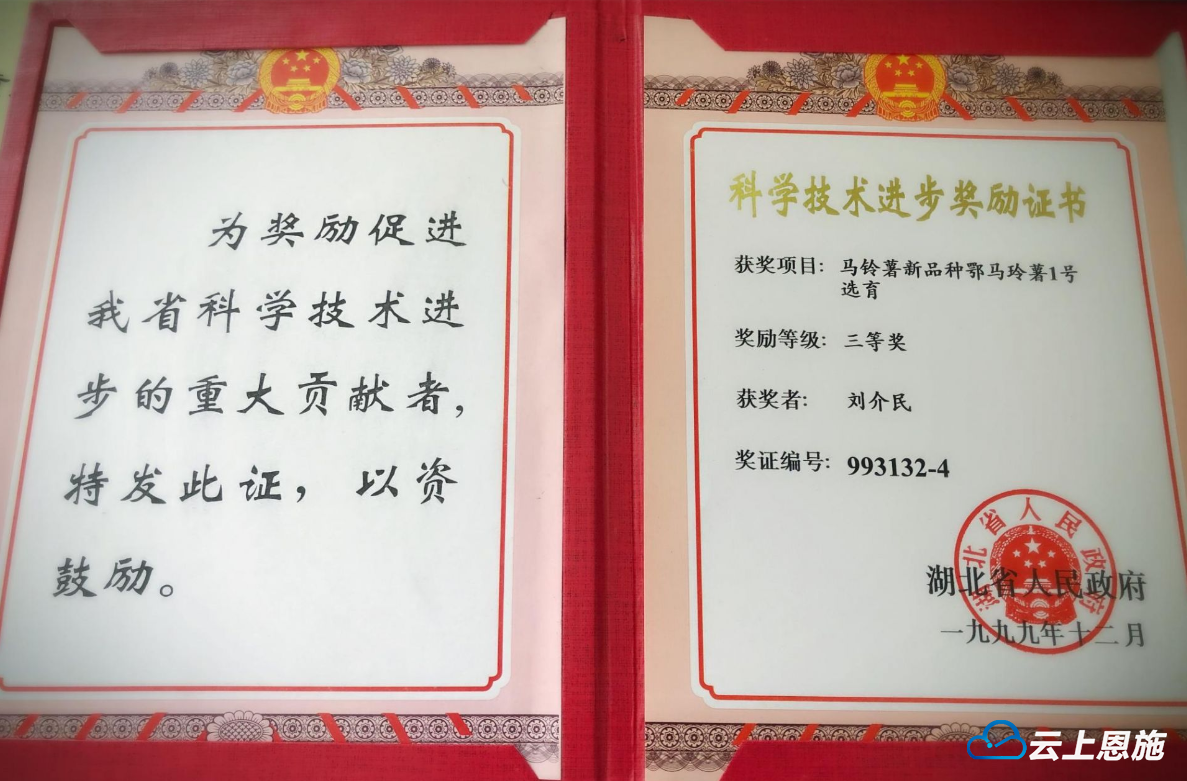 为奖励促进
我省科学技术进
步的重大贡献者，
特发此证，以资
鼓励。
科学技术进步奖励证书
获奖项目：马铃薯新品种鄂马玲薯1号
选育
奖励等级：三等奖
获奖者：刘介民
奖证编号：993132-4
湖北省人民政府
湖北省人民政府
一九九九年十二月
云上恩施